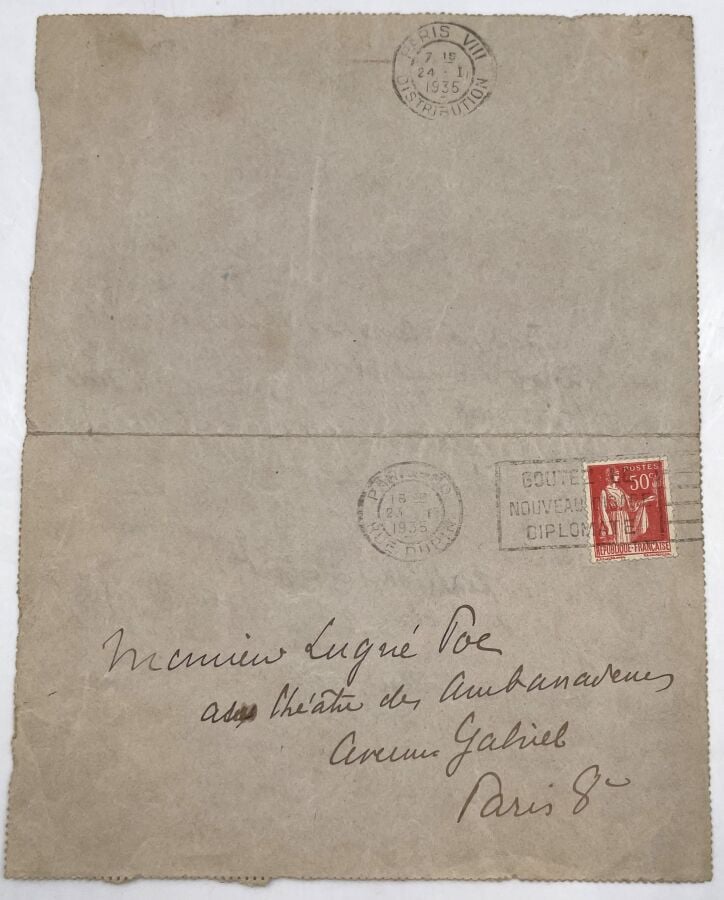 PARIS VIII
7 15
24 - II
1935
DISTRIBUTION
18
23
1935
RUE DUPIN
GOUTEZ
NOUVEAU
DIPLOMATE
POSTES
50c
REPUBLIQUE-FRANÇAISE
Monsieur Lugné Poe
au théâtre des Ambassadeurs
Avenue Gabriel
Paris 8e